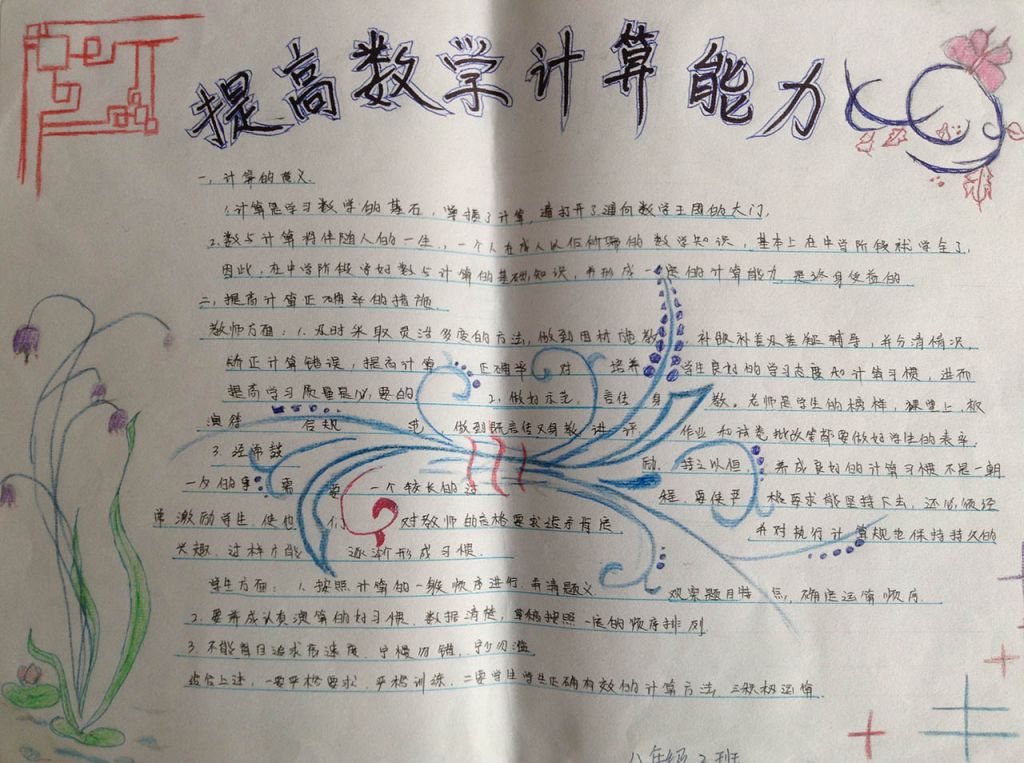 提高数学计算能力
一，计算的意义
1.计算是学习数学的基石，掌握了计算，遍打开了通向数学王国的大门，
2.数与计算将伴随人的一生，一个人在成人以后所需的数学知识，基本上在中学阶段就学全了，
因此，在中学阶段学好数与计算的基础知识，并形成一定的计算能力 是终身受益的
二，提高计算正确率的措施
教师方面：1.及时采取灵活多变的方法，做到因材施教，补眼补差及差错辅导，并分清情况，
矫正计算错误，提高计算 正确率 对 培养 学生良好的学习态度和计算习惯，进而
提高学习质量是必要的 2.做好示范，言传身教。老师是学生的榜样，课堂上，板
演得 合规 范 做到既言传又身教 讲评 作业和试卷批改等都要做好学生的表率
3.经常鼓 励 持之以恒 养成良好的计算习惯不是一朝
一夕的事 需要 一个较长的过 程 要使严格要求能坚持下去，还必须经
常激励学生 使他们 对教师的严格要求 并对执行计算规也保持持久的
兴趣，这样才能 逐渐形成习惯
学生方面：1.按照计算的一般顺序进行 弄清题义 观察题目特点，确定运算顺序
2.要养成认真演算的好习惯 数据清楚，草稿按照一定的顺序排列
3.不能盲目追求高速度 宁慢勿错，宁少勿滥
综合上述，一要严格要求 严格训练，二要学生学生正确有效的计算方法 三积极运算
八年级2班